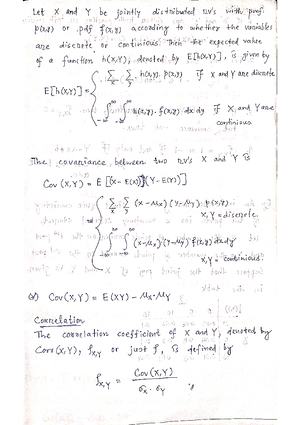 Let X and Y be jointly distributed rv's with pmf
p(x,y) or pdf f(x,y) according to whether the variables
are discrete or continious. Then the expected value
of a function h(X,Y), denoted by E[h(X,Y)], is given by
E[h(X,Y)] = { Σx Σy h(x,y). p(x,y) If X and Y are discrete
∫∞-∞ ∫∞-∞ h(x,y). f(x,y) dx dy if X and Y are
continious.
The covariance between two rv's X and Y is
Cov (X,Y) = E [(X - E(X)) (Y - E(Y))]
= { Σx Σy (x - μx) (y - μy) p(x,y)
x, y = discrete
∫∞-∞ ∫∞-∞ (x - μx) (y - μy) f(x,y) dx dy
x, y = continious
Cov (X,Y) = E(XY) - μx . μy
Correlation
The correlation coefficient of X and Y, denoted by
Corr (X,Y), ρx,y or just ρ, is defined by
ρx,y = Cov (X,Y) / σx . σy